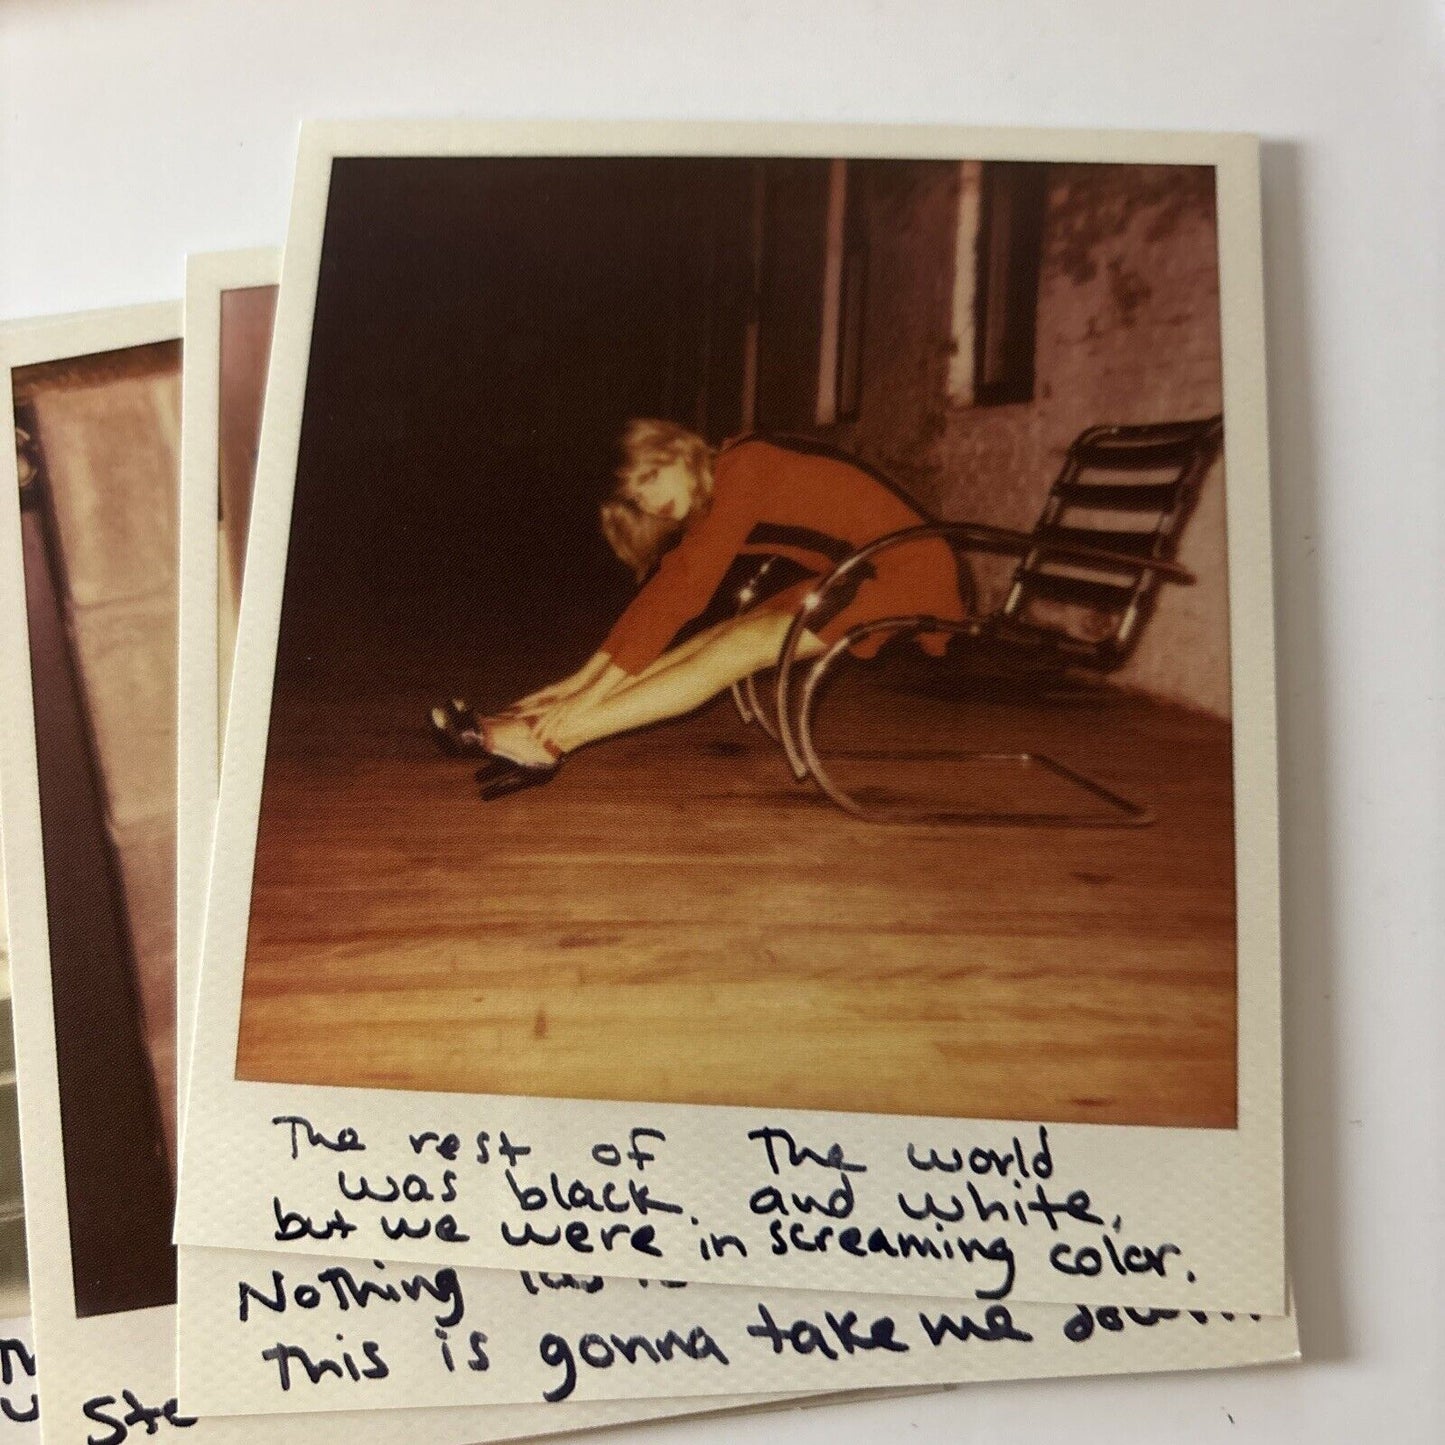 The rest of The world
was black and white,
but we were in screaming color.
Nothing
this is gonna take me down
Ste